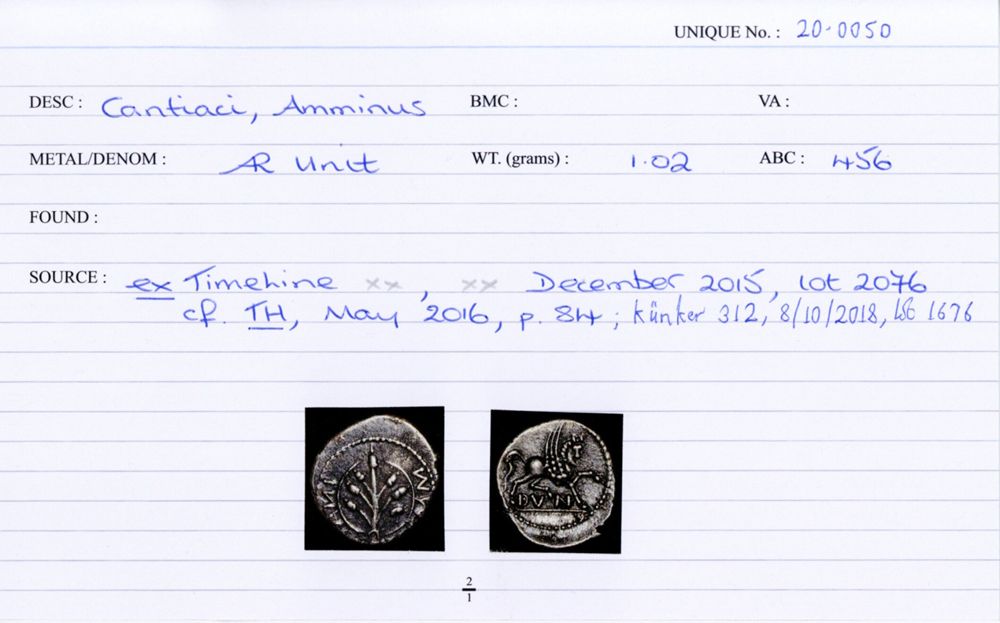 UNIQUE No. : 20.0050
DESC : Cantiaci, Amminus BMC : VA :
METAL/DENOM : AR Unit WT. (grams) : 1.02 ABC : 456
FOUND :
SOURCE : ex Timeline xx, xx December 2015, lot 2076
cf. TH, May 2016, p. 84; Künker 312, 8/10/2018, 1676
DVN
2
1